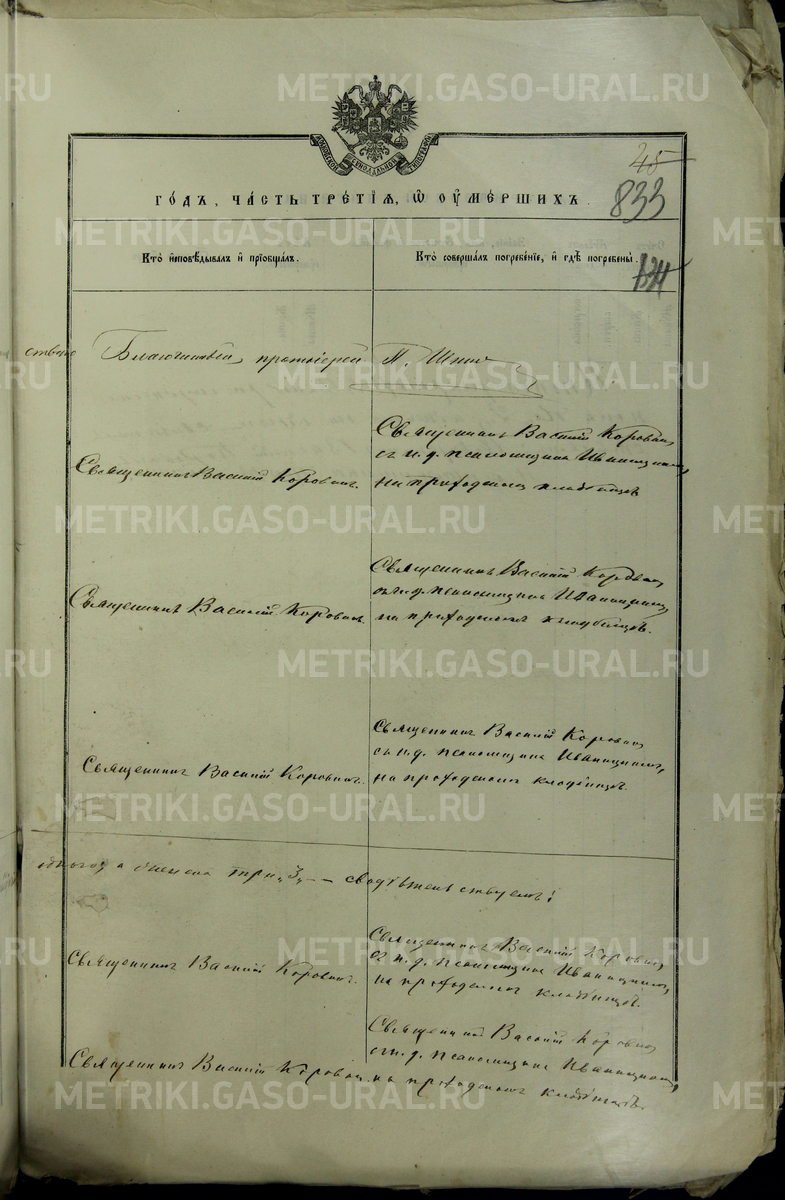 METRIKI.GASO-URAL.RU
45
833
ГО́ДЪ, ЧА́СТЬ ТРЕ́ТІѦ, Ѡ҆ ОУ҆МЕ́РШИХЪ.
Кто̀ и҆сповѣ́дывалъ и҆ прїѡбща́лъ.
Кто̀ соверша́лъ погребе́нїе, и҆ гдѣ̀ погребены̀.
ство
Благочинный, протоіерей П.
Священникъ Василій Коровинъ.
Священникъ Василій Коровинъ
съ и. д. псаломщика Иваницкимъ,
на приходскомъ кладбищѣ
Священникъ Василій Коровинъ.
Священникъ Василій Коровинъ
съ и. д. псаломщика Иваницкимъ
на приходскомъ кладбищѣ.
Священникъ Василій Коровинъ.
Священникъ Василій Коровинъ
съ и. д. псаломщика Иваницкимъ,
на приходскомъ кладбищѣ.
а женска три „3„ — свидѣтельствуемъ:
Священникъ Василій Коровинъ.
Священникъ Василій Коровинъ
съ и. д. псаломщика Иваницкимъ,
на приходскомъ кладбищѣ.
Священникъ Василій Коровинъ
Священникъ Василій Коровинъ
съ и. д. псаломщика Иваницкимъ,
на приходскомъ кладбищѣ.